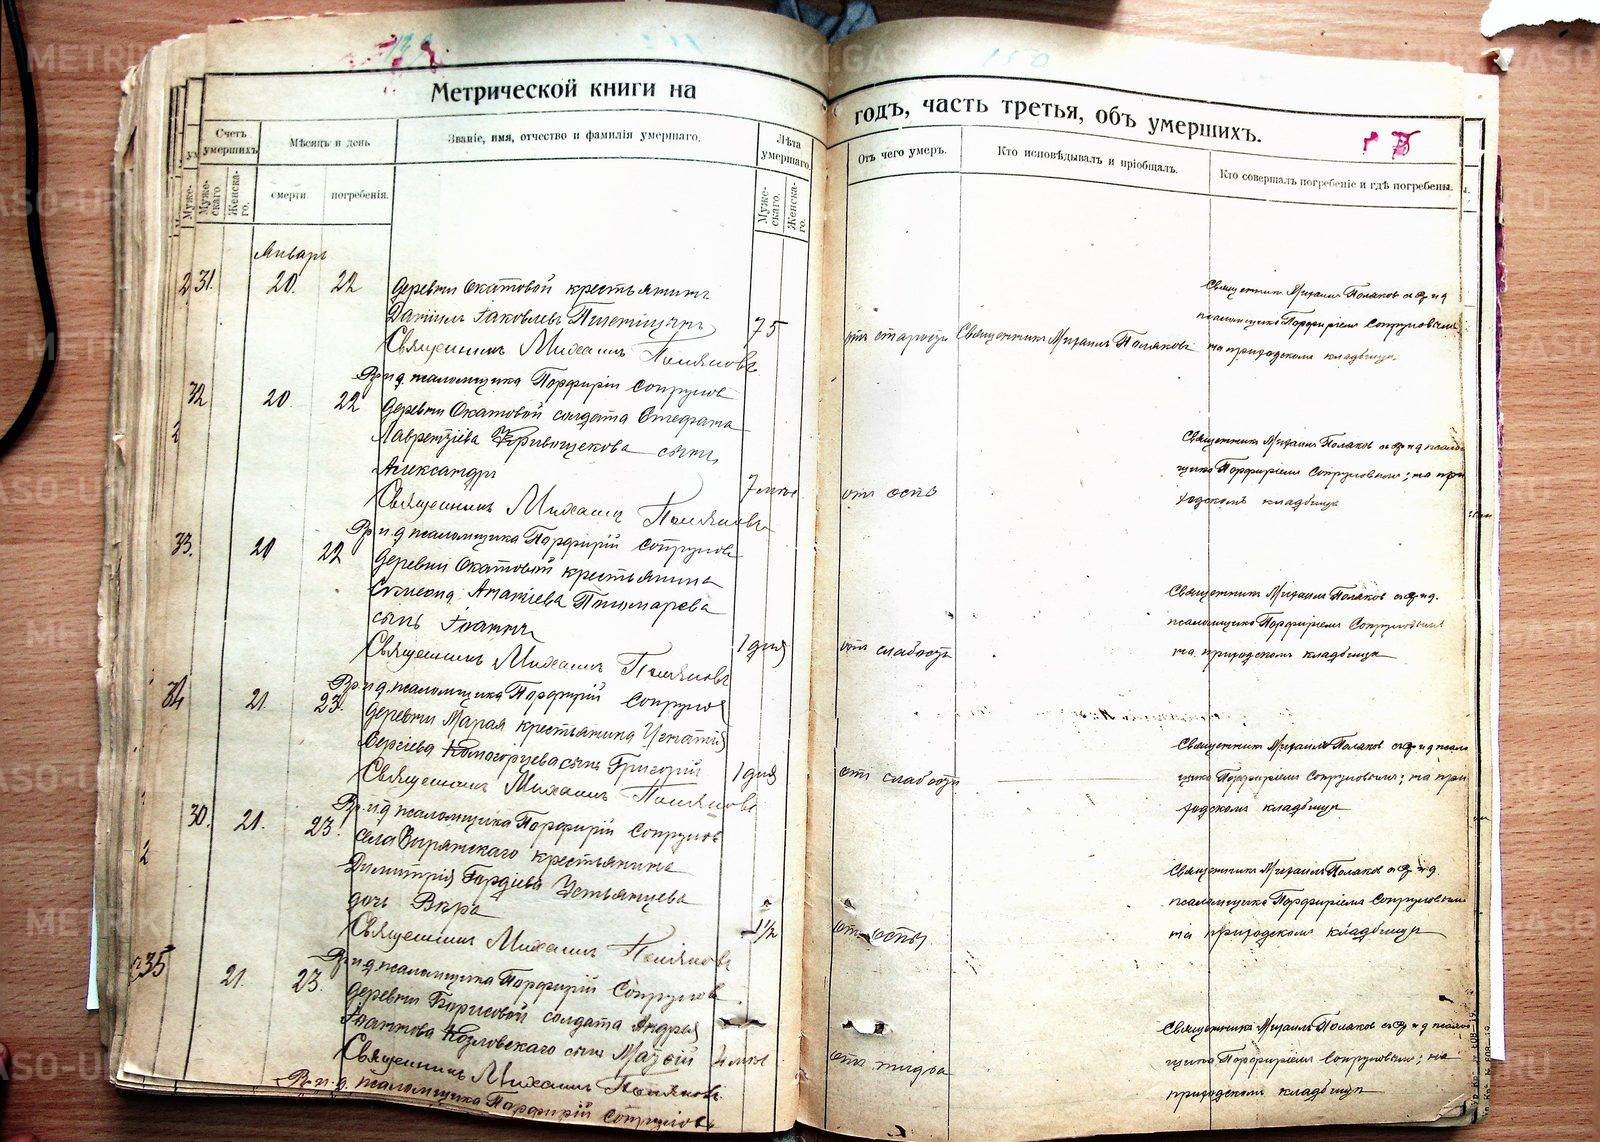 Метрической книги на
годъ, часть третья, объ умершихъ.
Счетъ умершихъ
Мѣсяцъ и день
Званіе, имя, отчество и фамилія умершаго.
Лѣта умершаго
Отъ чего умеръ.
Кто исповѣдывалъ и пріобщалъ.
Кто совершалъ погребеніе и гдѣ погребены.
Мужескаго.
Женскаго.
смерти.
погребенія.
Мужескаго.
Женскаго.
Январь
31. 20. 22 деревни Окатовой крестьянинъ
Даніилъ Іаковлевъ
75
отъ старости Священникъ Михаилъ Поляковъ
Священникъ Михаилъ Поляковъ и и д
псаломщика Порфиріемъ Сопруновымъ
на приходскомъ кладбищѣ
Священникъ Михаилъ Поляковъ
и д псаломщика Порфирій Сопруновъ
32 20. 22 деревни Окатовой солдата Стефана
Лаврентіева Кривощекова сынъ
Александръ
7 мѣс
отъ оспы
Священникъ Михаилъ Поляковъ и и д псалом
щика Порфиріемъ Сопруновымъ; на при
ходскомъ кладбищѣ
Священникъ Михаилъ Поляковъ
и д псаломщика Порфирій Сопруновъ
33. 20 22 деревни Окатовой крестьянина
Симеона Ананіева Пономарева
сынъ Іоаннъ
1 дня
отъ слабости
Священникъ Михаилъ Поляковъ и и д.
псаломщика Порфиріемъ Сопруновымъ
на приходскомъ кладбищѣ
Священникъ Михаилъ Поляковъ
и д псаломщика Порфирій Сопруновъ
34 21. 23. деревни Марая крестьянина Игнатія
Сергіева Комогорцева сынъ Григорій
1 дня
отъ слабости
Священникъ Михаилъ Поляковъ и и д псалом
щика Порфиріемъ Сопруновымъ; на при
ходскомъ кладбищѣ
Священникъ Михаилъ Поляковъ
и д псаломщика Порфирій Сопруновъ
30. 21. 23. села крестьянина
Димитрія Гордіева Устьянцева
дочь Вѣра
1½
отъ оспы
Священникъ Михаилъ Поляковъ и и д.
псаломщика Порфиріемъ Сопруновымъ
на приходскомъ кладбищѣ
Священникъ Михаилъ Поляковъ
и д псаломщика Порфирій Сопруновъ
35 21. 23. деревни Борисовой солдата Андрея
Іоаннова Козловскаго сынъ
4 мѣс
отъ
Священникъ Михаилъ Поляковъ и и д псалом
щика Порфиріемъ Сопруновымъ; на
приходскомъ кладбищѣ
Священникъ Михаилъ Поляковъ
и. д. псаломщика Порфирій Сопруновъ